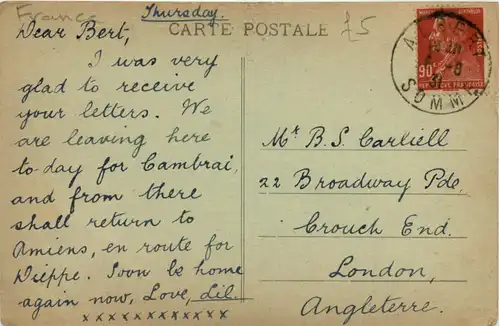 France
Thursday.
£5
CARTE POSTALE
Dear Bert,
I was very
glad to receive
your letters. We
are leaving here
to-day for Cambrai,
and from there
shall return to
Amiens, en route for
Dieppe. Soon be home
again now, Love, Lil.
xxxxxxxxxxxx
ALBERT
SOMME
90
Mr B. S. Carliell
22 Broadway Pde,
Crouch End.
London,
Angleterre.